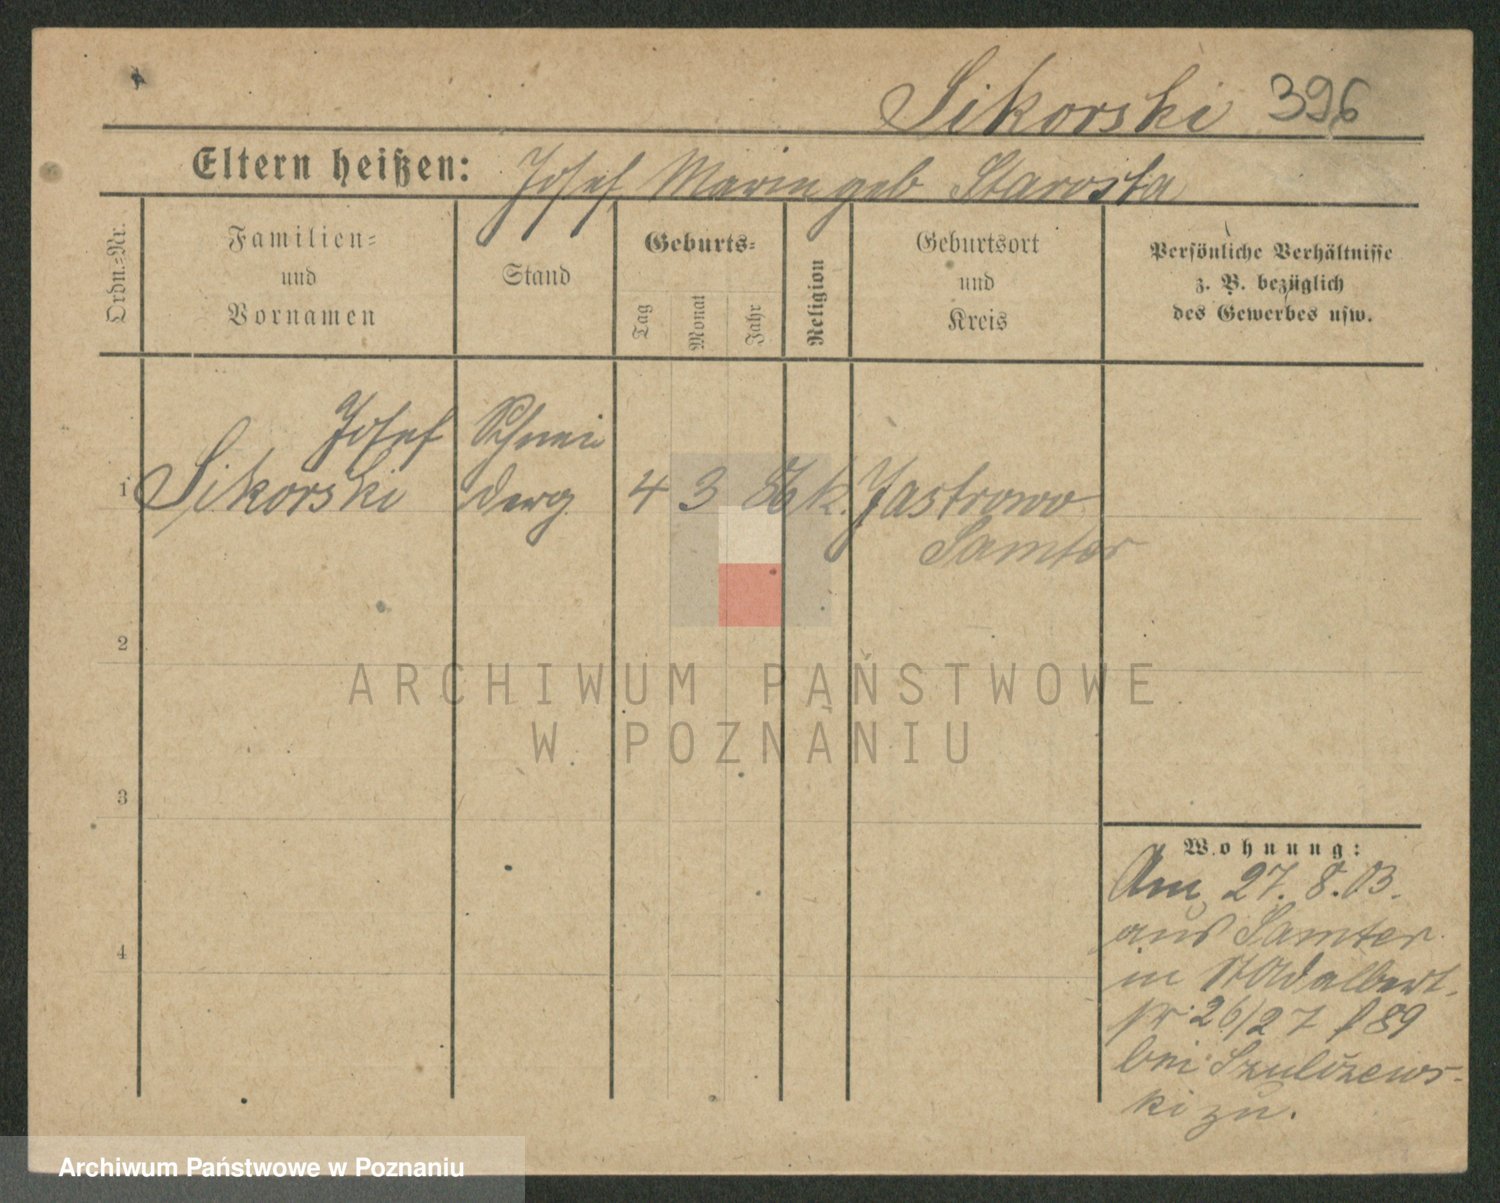 Sikorski 396
Eltern heißen: Josef Maria geb Starosta
Ordn.=Nr.
Familien=
und
Vornamen
Stand
Geburts=
Tag
Monat
Jahr
Religion
Geburtsort
und
Kreis
Persönliche Verhältnisse
z. B. bezüglich
des Gewerbes usw.
Josef Schnei
1 Sikorski derg. 4 3 86 k. Jastrowo
Samter
2
3
4
Wohnung:
Am 27. 8. 03.
aus Samter
in St Adalbert-
str 26/27 f 89
bei Szulczews-
ki zu.
ARCHIWUM PAŃSTWOWE
W POZNANIU
Archiwum Państwowe w Poznaniu